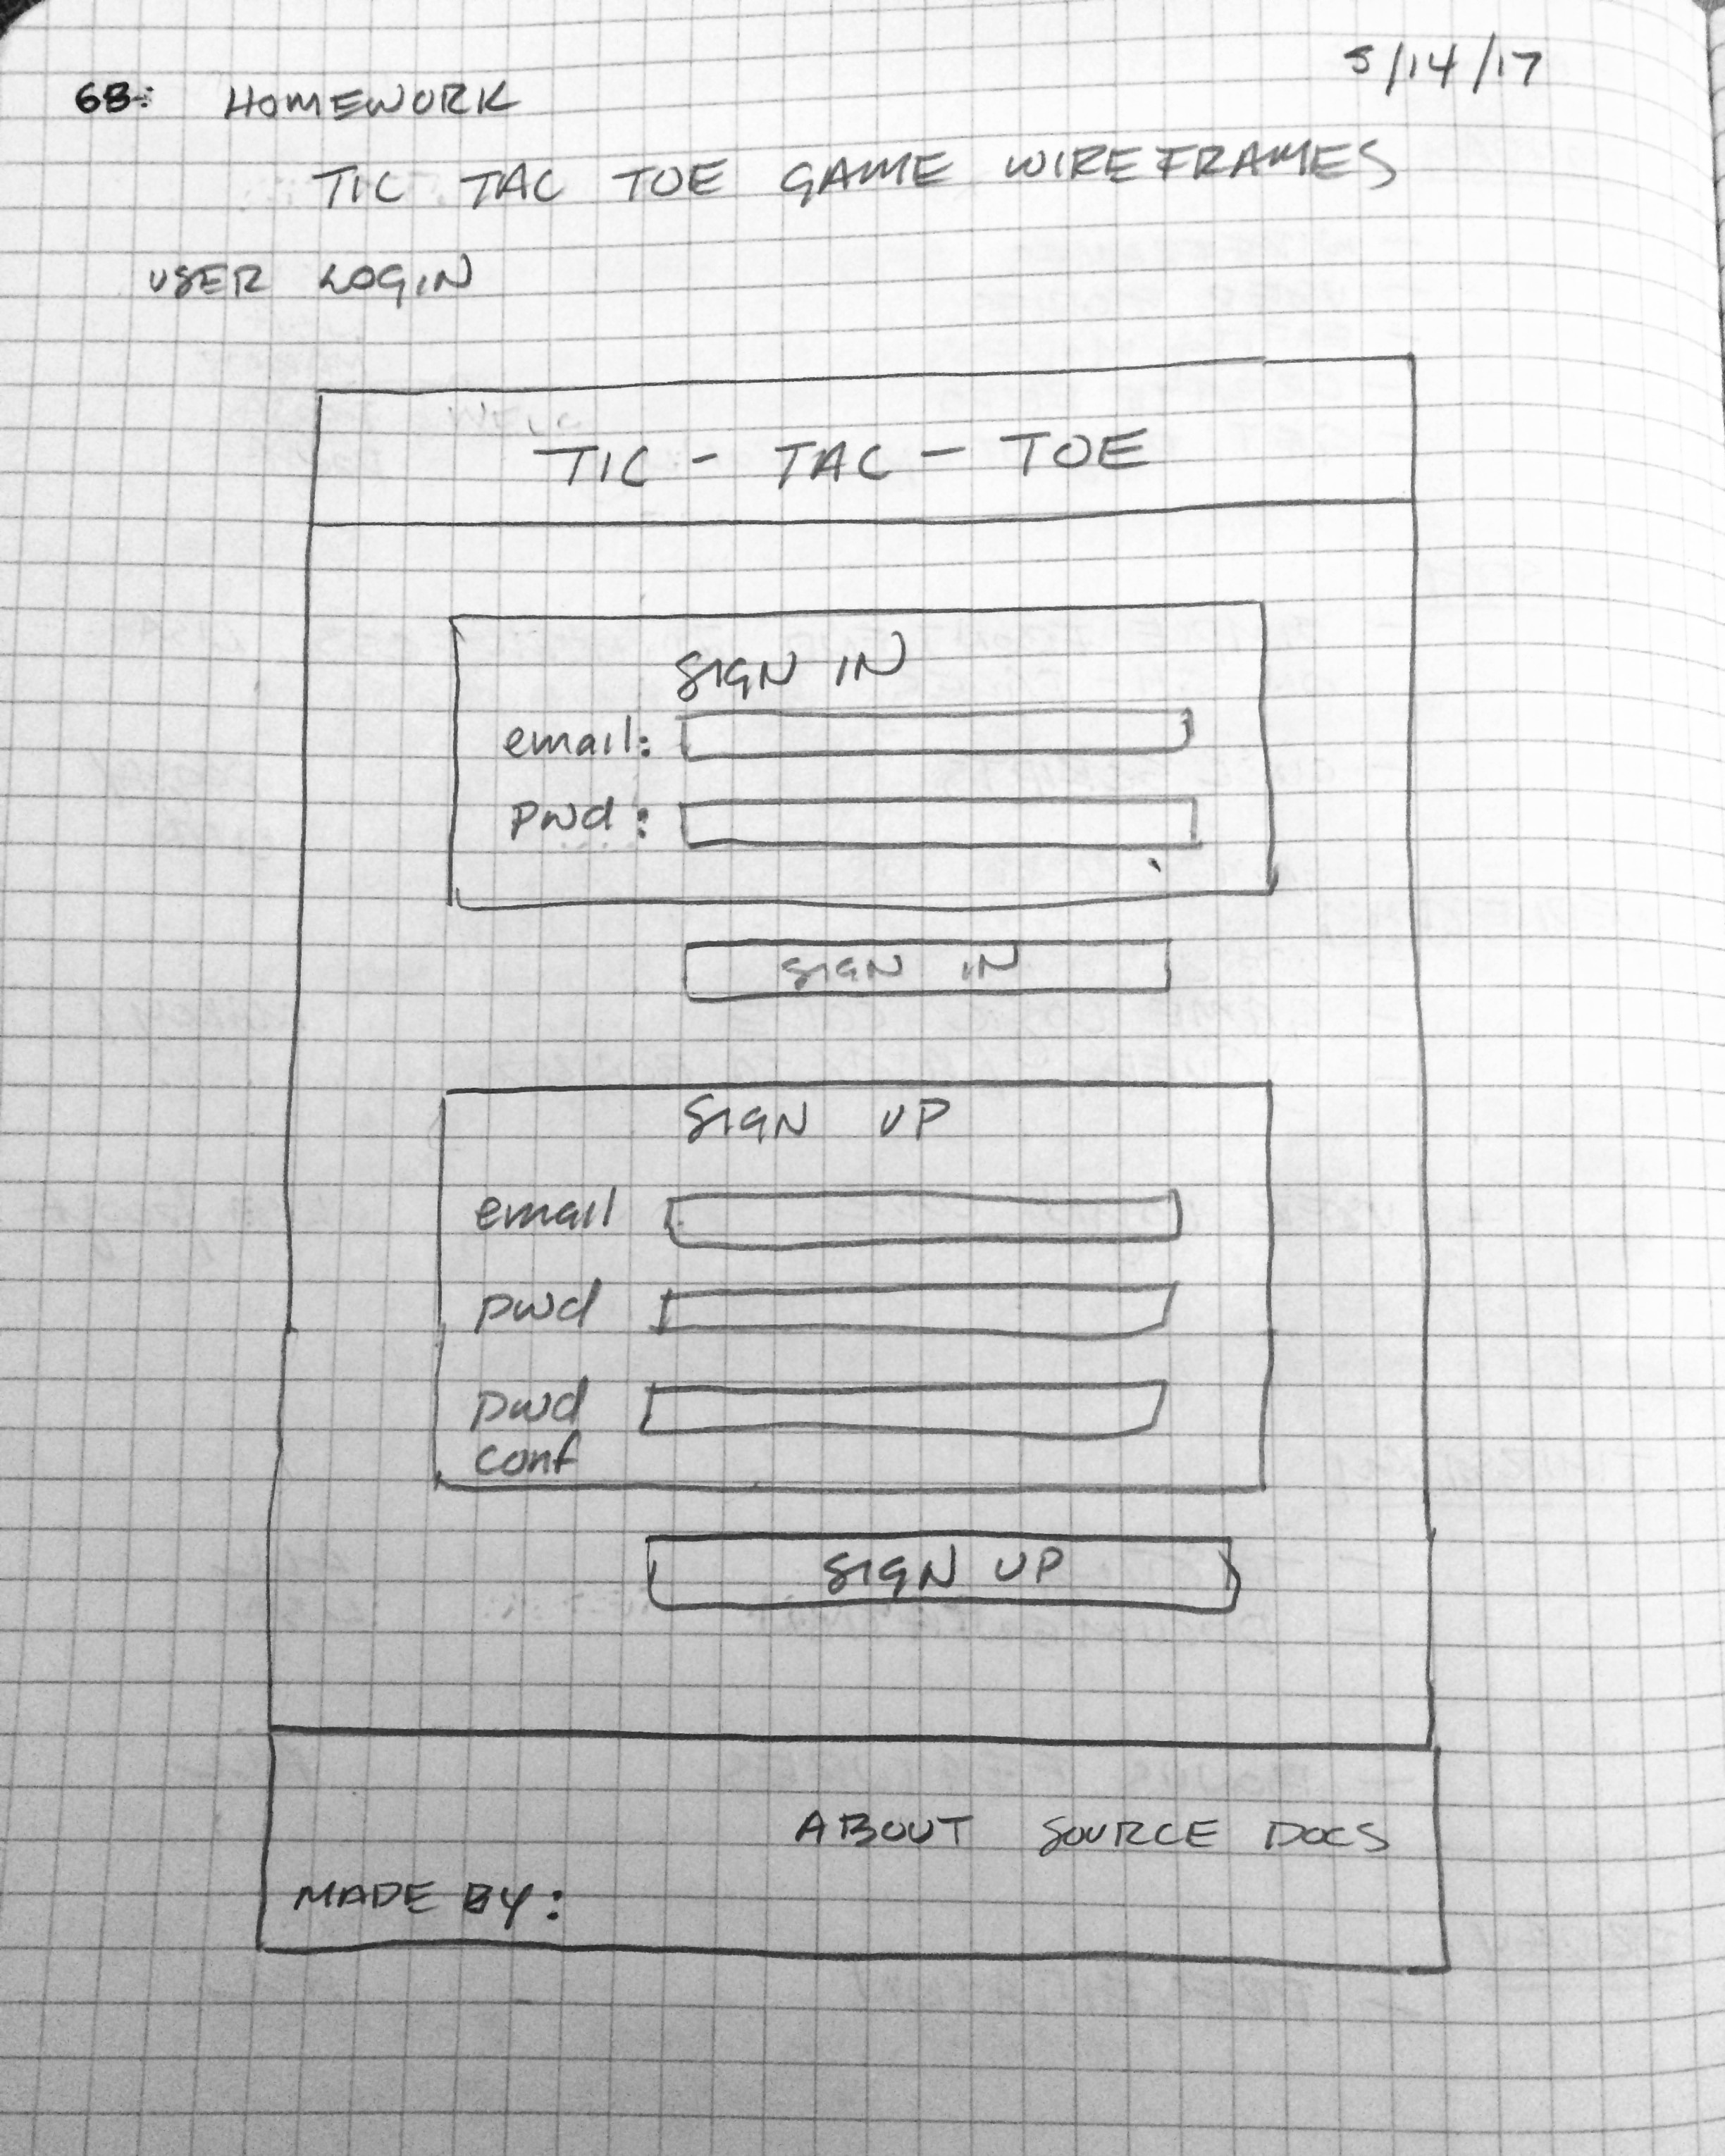 68: HOMEWORK 5/14/17
TIC TAC TOE GAME WIREFRAMES
USER LOGIN
TIC - TAC - TOE
SIGN IN
email:
pwd:
SIGN IN
SIGN UP
email
pwd
pwd
conf
SIGN UP
ABOUT SOURCE DOCS
MADE BY: